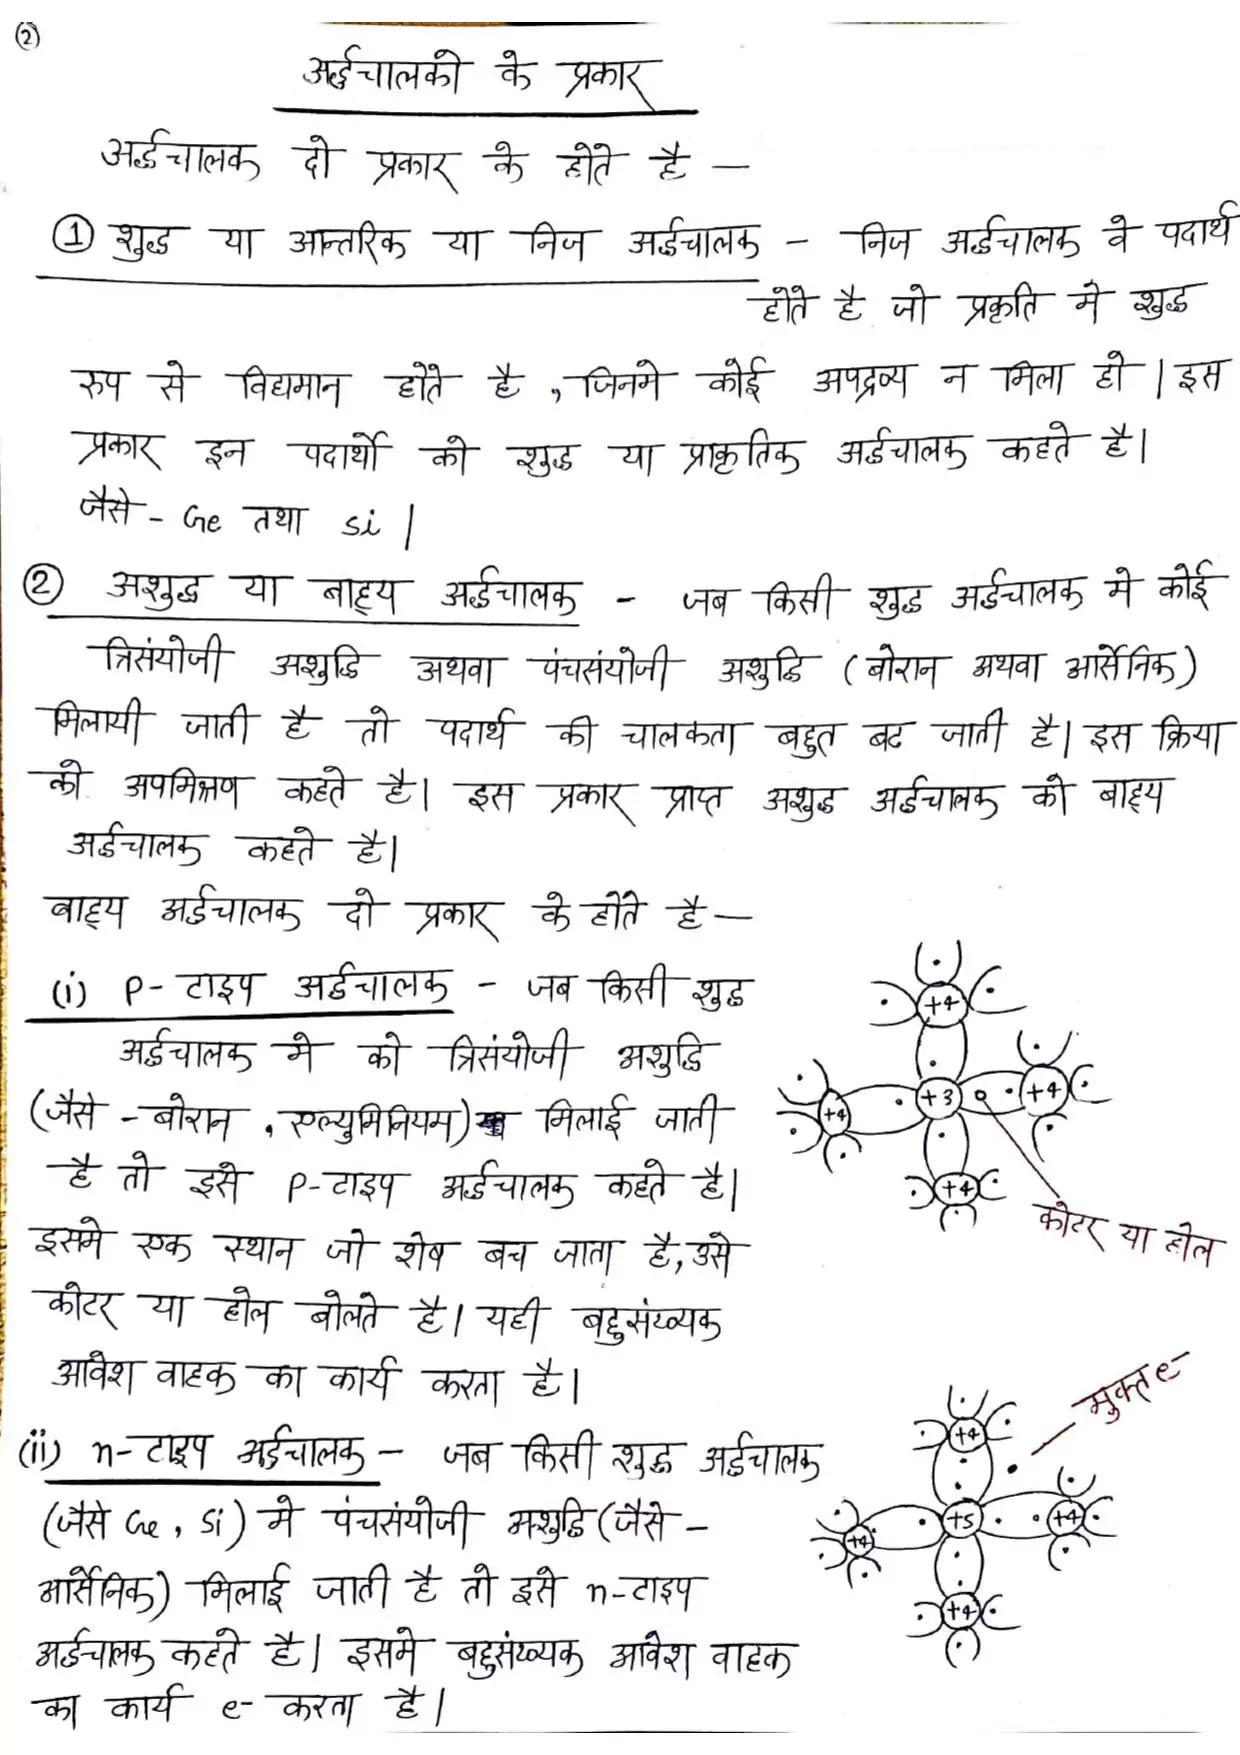 ②
अर्द्धचालको के प्रकार
अर्द्धचालक दो प्रकार के होते है —
① शुद्ध या आन्तरिक या निज अर्द्धचालक - निज अर्द्धचालक वे पदार्थ
होते है जो प्रकृति मे शुद्ध
रुप से विद्यमान होते है , जिनमे कोई अपद्रव्य न मिला हो | इस
प्रकार इन पदार्थो को शुद्ध या प्राकृतिक अर्द्धचालक कहते है|
जैसे - Ge तथा Si |
② अशुद्ध या बाह्य अर्द्धचालक - जब किसी शुद्ध अर्द्धचालक मे कोई
त्रिसंयोजी अशुद्धि अथवा पंचसंयोजी अशुद्धि (बोरान अथवा आर्सेनिक)
मिलायी जाती है तो पदार्थ की चालकता बहुत बढ जाती है| इस क्रिया
को अपमिश्रण कहते है| इस प्रकार प्राप्त अशुद्ध अर्द्धचालक को बाह्य
अर्द्धचालक कहते है|
बाह्य अर्द्धचालक दो प्रकार के होते है —
(i) P- टाइप अर्द्धचालक - जब किसी शुद्ध
अर्द्धचालक मे को त्रिसंयोजी अशुद्धि
(जैसे - बोरान , एल्युमिनियम) मिलाई जाती
है तो इसे P-टाइप अर्द्धचालक कहते है|
इसमे एक स्थान जो शेष बच जाता है, उसे
कोटर या होल बोलते है| यही बहुसंख्यक
आवेश वाहक का कार्य करता है|
+4
+4
+3
+4
+4
कोटर या होल
(ii) n-टाइप अर्द्धचालक - जब किसी शुद्ध अर्द्धचालक
(जैसे Ge , Si) मे पंचसंयोजी अशुद्धि (जैसे -
आर्सेनिक) मिलाई जाती है तो इसे n-टाइप
अर्द्धचालक कहते है| इसमे बहुसंख्यक आवेश वाहक
का कार्य e- करता है|
मुक्त e-
+4
+4
+5
+4
+4